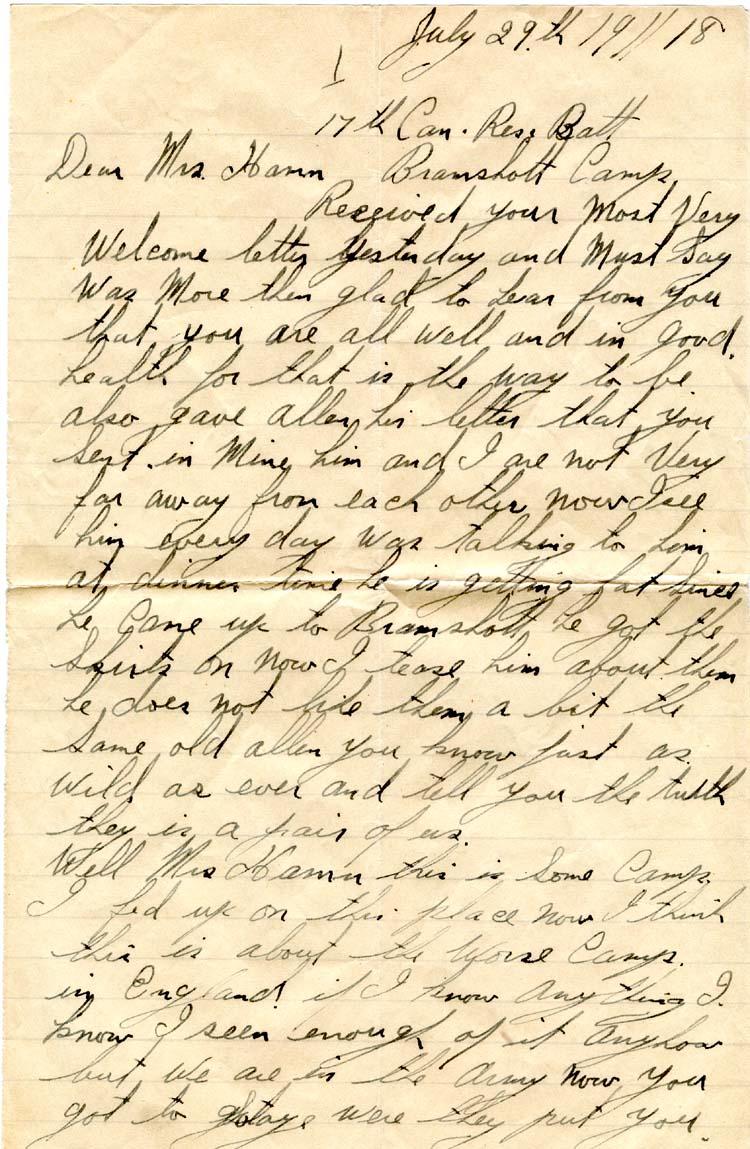 July 29.th 19//18
1
17th Can. Res. Batt
Dear Mrs. Hamm Bramshott Camp
Received your Most Very
Welcome letter yesterday and Must Say
Was More then glad to hear from you
that you are all well and in good.
health for that is the way to be
also gave allen his letter that you
Sent in Mine him and I are not Very
far away from each other now I see
him every day was talking to him
at dinner time he is getting fat Since
he Came up to Bramshott he got the
Skirts on now I tease him about them
he does not like them a bit the
Same old allen you know just as
Wild as ever and tell you the truth
they is a pair of us.
Well Mrs Hamm this is Some Camp.
I fed up on this place now I think
this is about the Worse Camp.
in England if I know anything I.
know I seen enough of it anyhow
but we are in the army now you
got to staye were they put you.